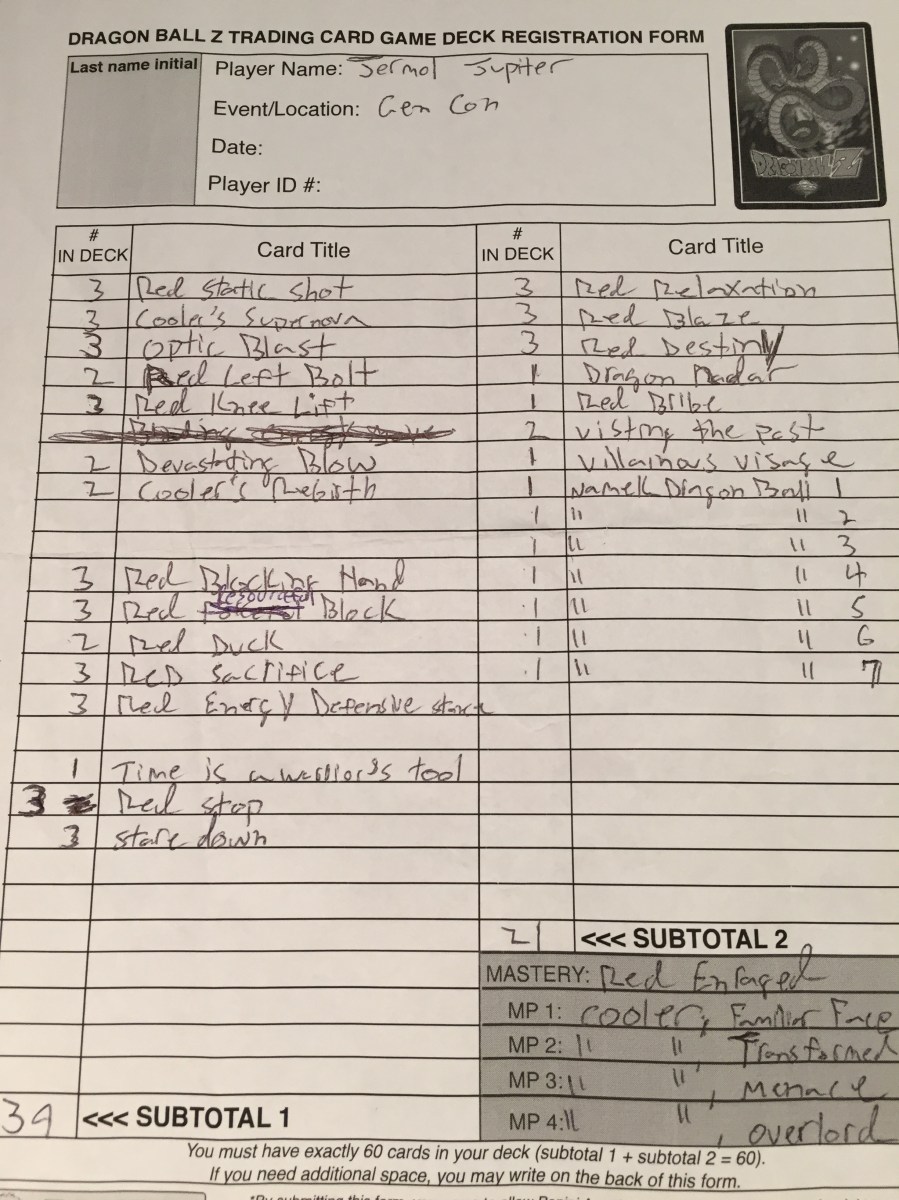 DRAGON BALL Z TRADING CARD GAME DECK REGISTRATION FORM
Last name initial
Player Name: Jermol Jupiter
Event/Location: Gen Con
Date:
Player ID #:
DRAGONBALL Z
# IN DECK Card Title
3 Red Static Shot
3 Cooler's Supernova
3 Optic Blast
2 Red Left Bolt
3 Red Knee Lift
2 Devastating Blow
2 Cooler's Rebirth
3 Red Blocking Hand
3 Red resourceful Block
2 Red Duck
3 RED Sacrifice
3 Red Energy Defensive stance
1 Time is a warrior's tool
3 Red stop
3 stare down
39 <<< SUBTOTAL 1
# IN DECK Card Title
3 Red Relaxation
3 Red Blaze
3 Red Destiny
1 Dragon Radar
1 Red Bribe
2 visting the past
1 villainous visage
1 Namek Dragon Ball 1
1 " " 2
1 " " 3
1 " " 4
1 " " 5
1 " " 6
1 " " 7
21 <<< SUBTOTAL 2
MASTERY: Red Enraged
MP 1: cooler, Familiar Face
MP 2: " ", Transformed
MP 3: " ", Menace
MP 4: " ", overlord
You must have exactly 60 cards in your deck (subtotal 1 + subtotal 2 = 60).
If you need additional space, you may write on the back of this form.